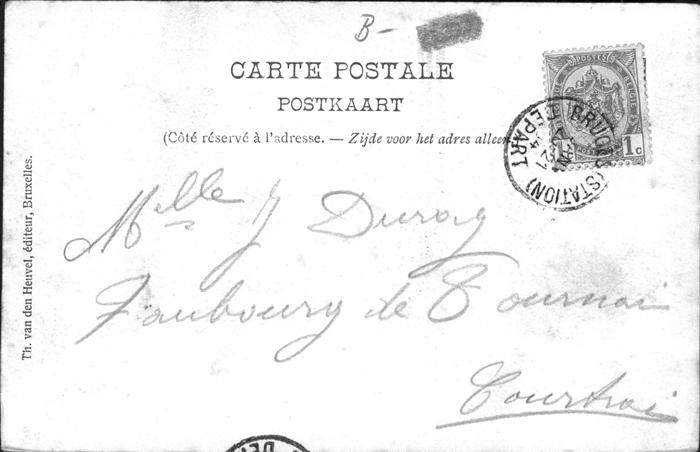 B-
CARTE POSTALE
POSTKAART
(Côté réservé à l'adresse. — Zijde voor het adres alleen
POSTES
1 c
BRUGES (STATION)
DEPART
Mlle J Duray
Faubourg de Tournai
Courtrai
Th. van den Heuvel, éditeur, Bruxelles.